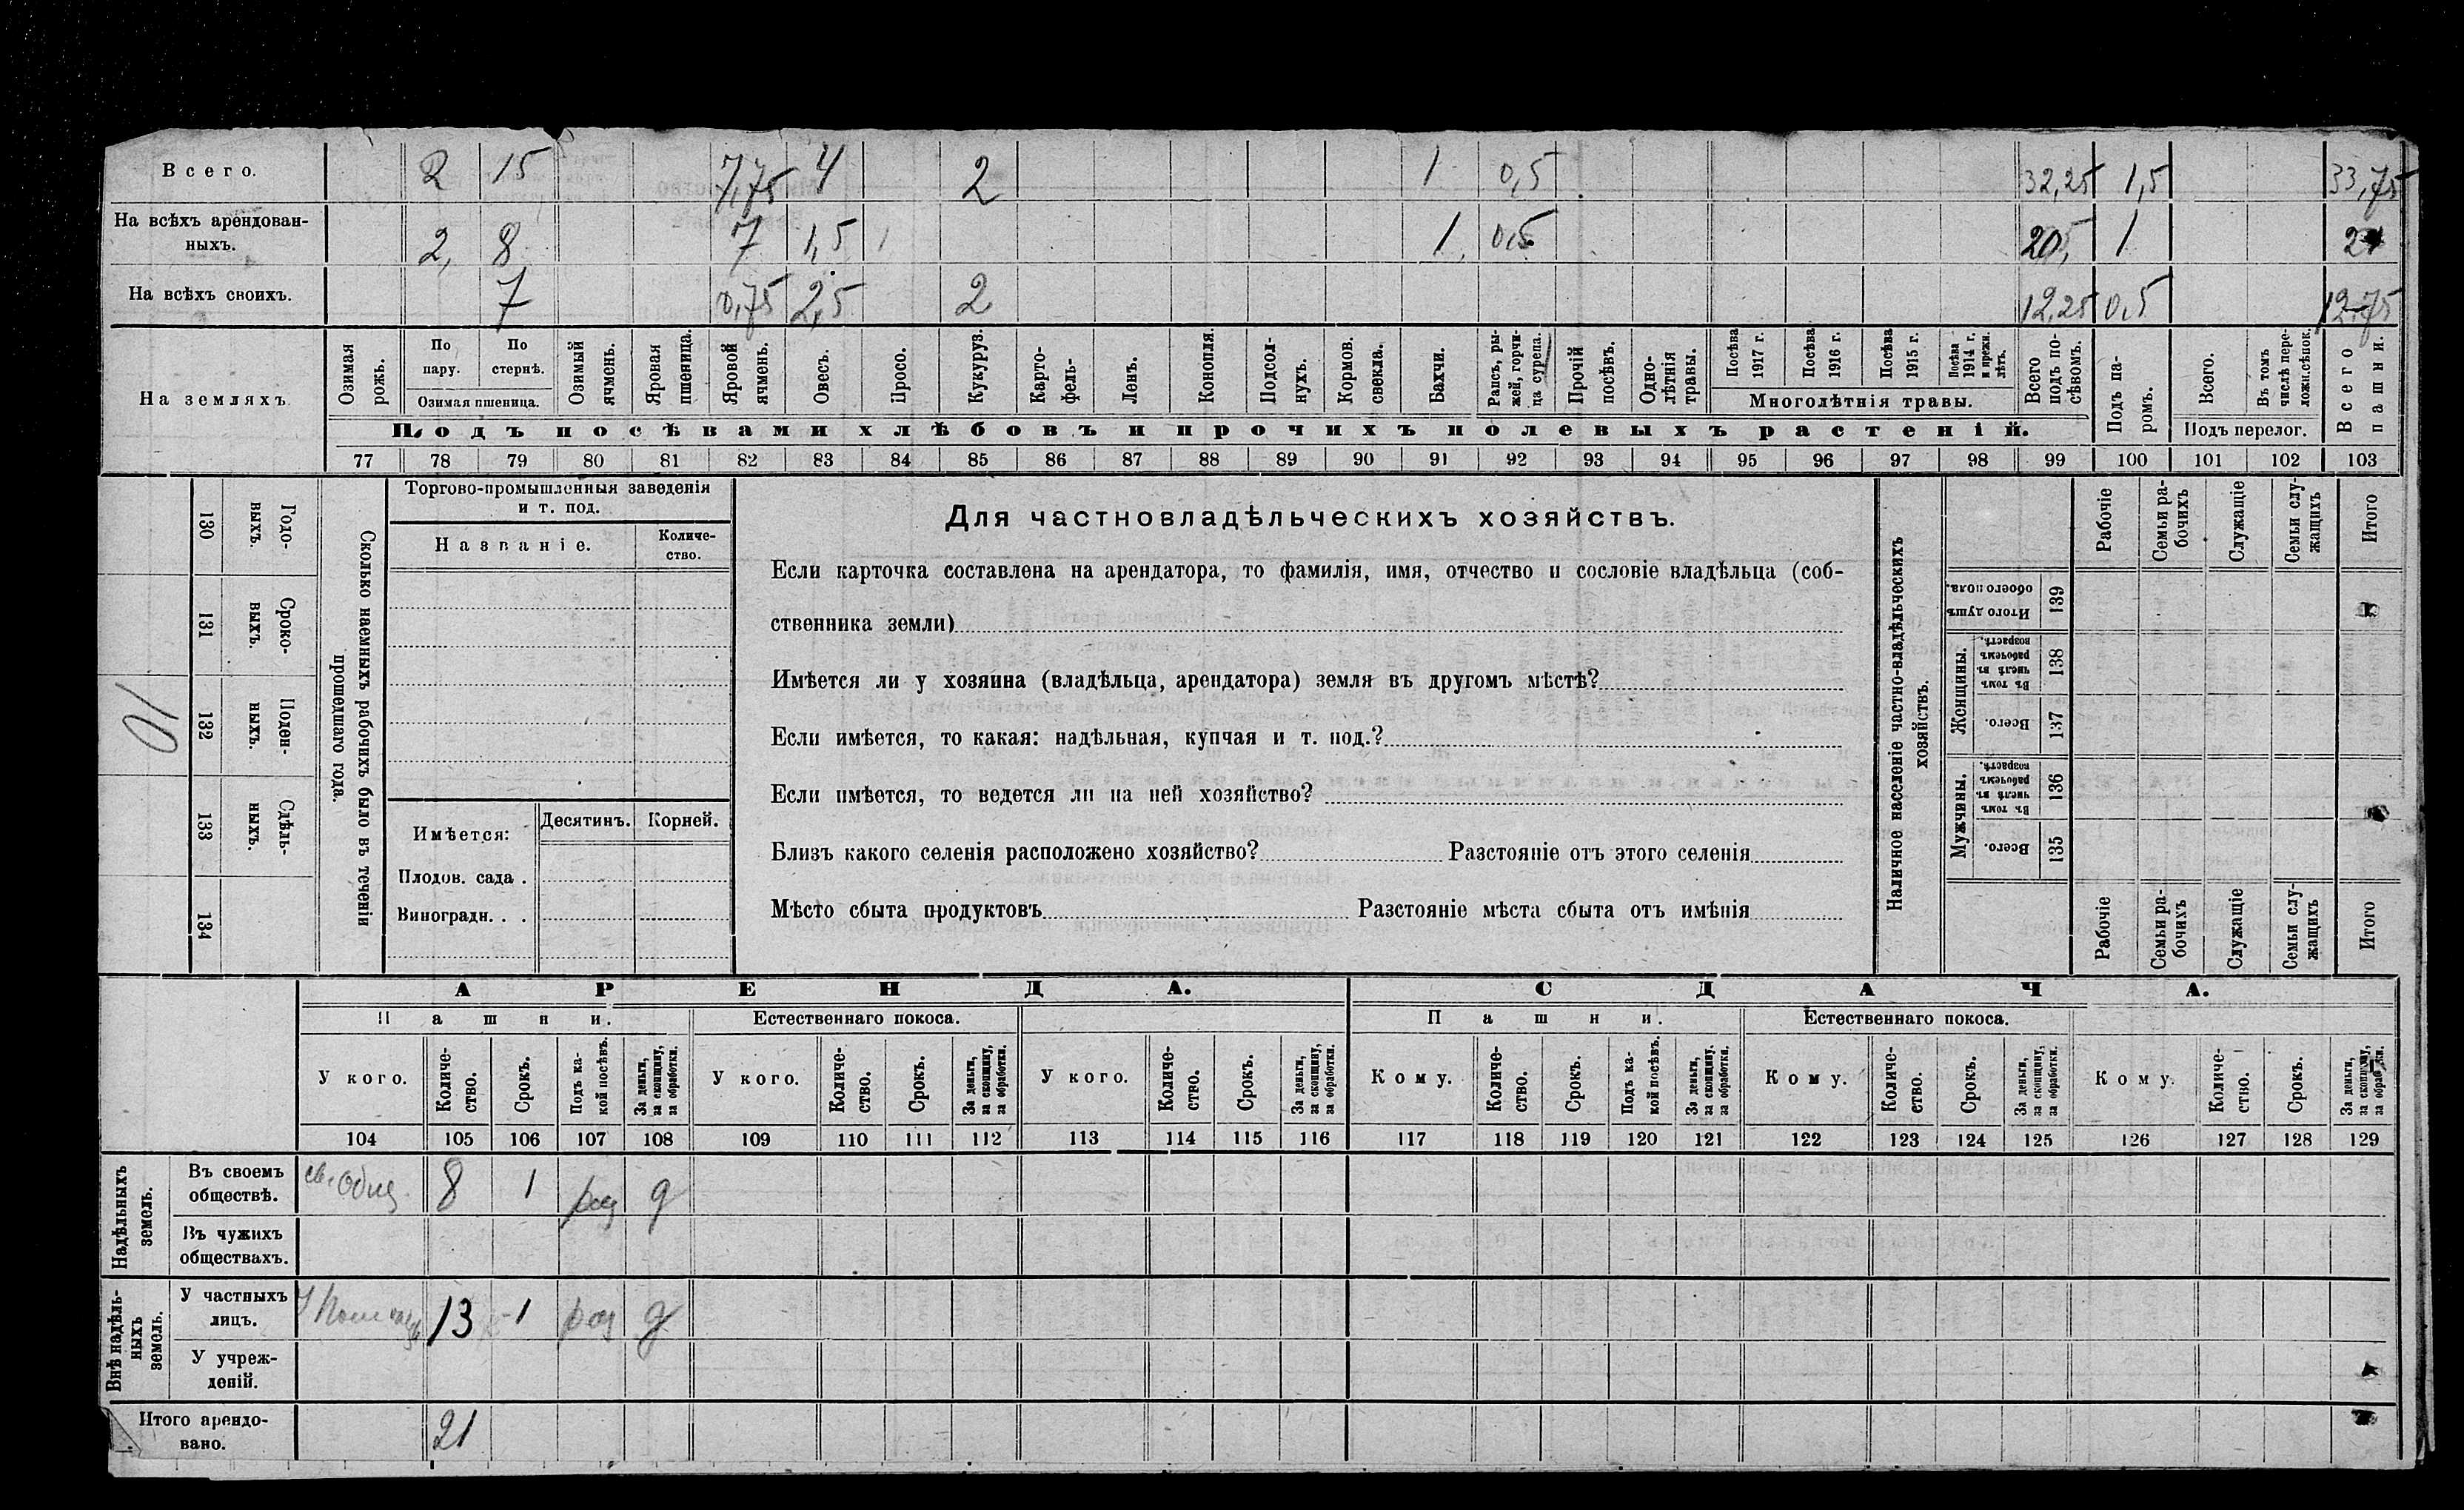 Всего. 2 15 7,75 4 2 1 0,5 32,25 1,5 33,75
На всѣхъ арендован-
ныхъ. 2, 8 7 1,5 1 0,5 20,5 1 21
На всѣхъ своихъ. 7 0,75 2,5 2 12,25 0,5 12,75
На земляхъ
Озимая рожь.
По пару.
По стернѣ.
Озимая пшеница.
Озимый ячмень.
Яровая пшеница.
Яровой ячмень.
Овесъ.
Просо.
Кукуруз.
Карто-
фель.
Ленъ.
Конопля.
Подсол-
нухъ.
Кормов. свекла.
Бахчи.
Рапсъ, ры-
жей, горчи-
ца сурепа.
Прочій посѣвъ.
Одно-
лѣтнія
травы.
Посѣва 1917 г.
Посѣва 1916 г.
Посѣва 1915 г.
Посѣва 1914 г. и прежн. лѣтъ.
Многолѣтнія травы.
Всего подъ по-
сѣвомъ.
Подъ па-
ромъ.
Всего.
Въ томъ числѣ пере-
ложн.сѣнок.
Подъ перелог.
Всего пашни.
Подъ посѣвами хлѣбовъ и прочихъ полевыхъ растеній.
77 78 79 80 81 82 83 84 85 86 87 88 89 90 91 92 93 94 95 96 97 98 99 100 101 102 103
10
130 Годо-
выхъ.
131 Сроко-
выхъ.
132 Поден-
ныхъ.
133 Сдѣль-
ныхъ.
134
Сколько наемныхъ рабочихъ было въ теченіи
прошедшаго года.
Торгово-промышленныя заведенія
и т. под.
Названіе.
Количе-
ство.
Имѣется:
Десятинъ. Корней.
Плодов. сада .
Виноградн. . .
Для частновладѣльческихъ хозяйствъ.
Если карточка составлена на арендатора, то фамилія, имя, отчество и сословіе владѣльца (соб-
ственника земли)
Имѣется ли у хозяина (владѣльца, арендатора) земля въ другомъ мѣстѣ?
Если имѣется, то какая: надѣльная, купчая и т. под.?
Если имѣется, то ведется ли на ней хозяйство?
Близъ какого селенія расположено хозяйство? Разстояніе отъ этого селенія
Мѣсто сбыта продуктовъ Разстояніе мѣста сбыта отъ имѣнія
Наличное населеніе частно-владѣльческихъ
хозяйствъ.
Рабочіе
Семьи ра-
бочихъ
Служащіе
Семьи слу-
жащихъ
Итого
Итого душъ обоего пола. 139
Женщины.
Въ томъ числѣ въ рабочемъ возрастѣ. 138
Всего. 137
Мужчины.
Въ томъ числѣ въ рабочемъ возрастѣ. 136
Всего. 135
Рабочіе
Семьи ра-
бочихъ
Служащіе
Семьи слу-
жащихъ
Итого
АРЕНДА. СДАЧА.
Пашни. Естественнаго покоса. Пашни. Естественнаго покоса.
У кого.
Количе-
ство.
Срокъ.
Подъ ка-
кой посѣвъ.
За деньги,
за скопщину,
за обработки.
У кого.
Количе-
ство.
Срокъ.
За деньги,
за скопщину,
за обработки.
У кого.
Количе-
ство.
Срокъ.
За деньги,
за скопщину,
за обработки.
Кому.
Количе-
ство.
Срокъ.
Подъ ка-
кой посѣвъ.
За деньги,
за скопщину,
за обработки.
Кому.
Количе-
ство.
Срокъ.
За деньги,
за скопщину,
за обработки.
Кому.
Количе-
ство.
Срокъ.
За деньги,
за скопщину,
за обработки.
104 105 106 107 108 109 110 111 112 113 114 115 116 117 118 119 120 121 122 123 124 125 126 127 128 129
Надѣльныхъ
земель.
Въ своемъ
обществѣ. св. Общ. 8 1 раз д
Въ чужихъ
обществахъ.
Внѣ надѣль-
ныхъ
земель.
У частныхъ
лицъ. 13 1 раз д
У учреж-
деній.
Итого арендо-
вано. 21